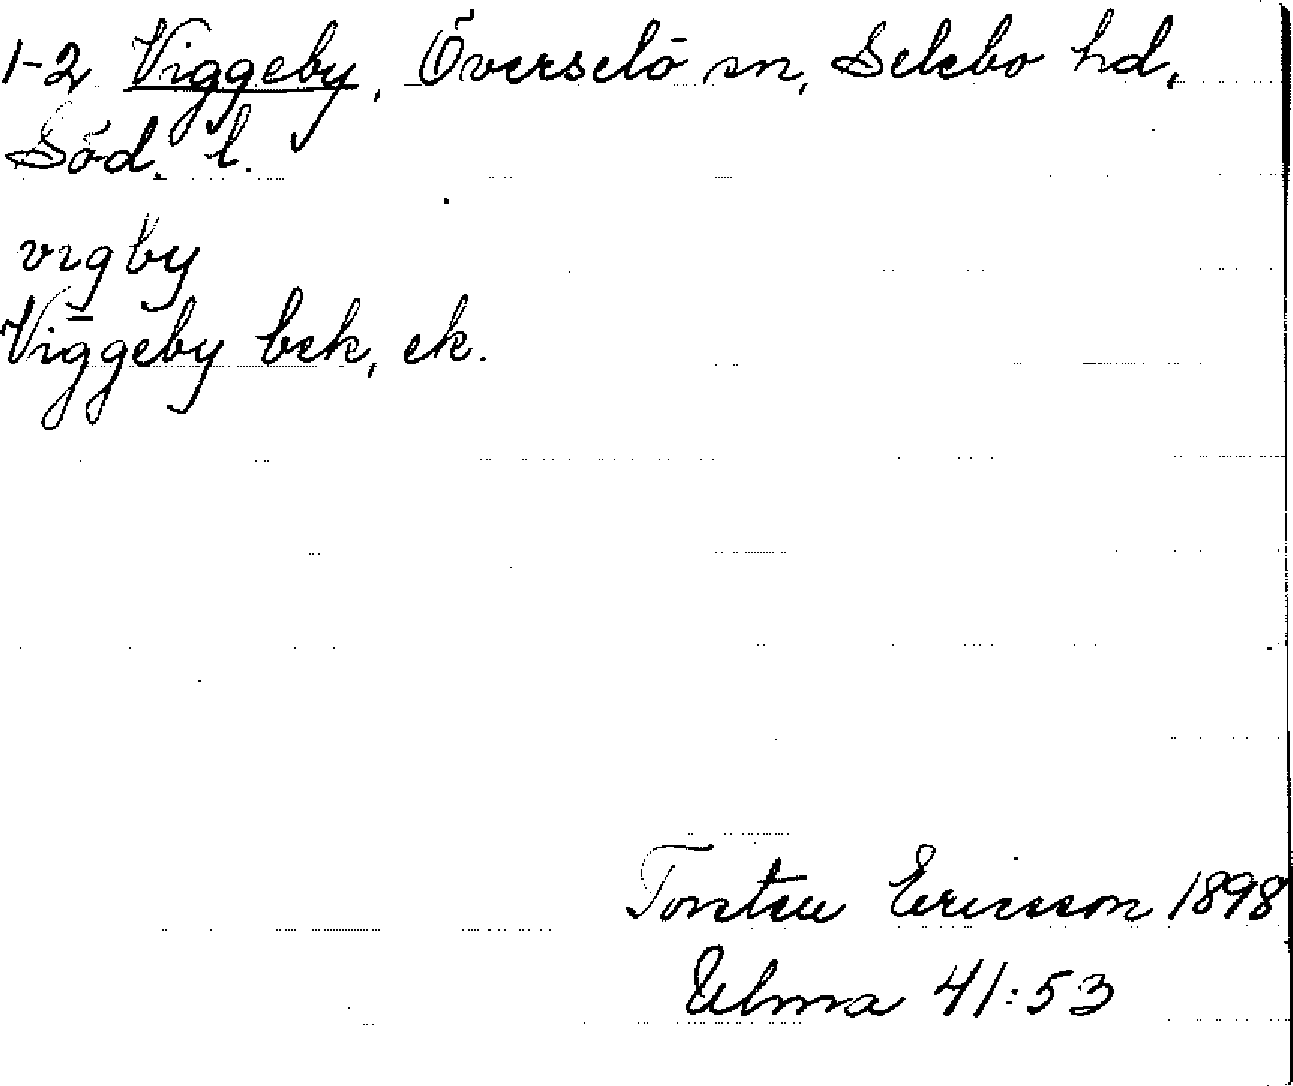 1-2 Viggeby, Överselö sn, Selebo hd,
Söd. l.
vigby
Viggeby bek, ek.
Torsten Ericsson 1898
Ulma 41:53